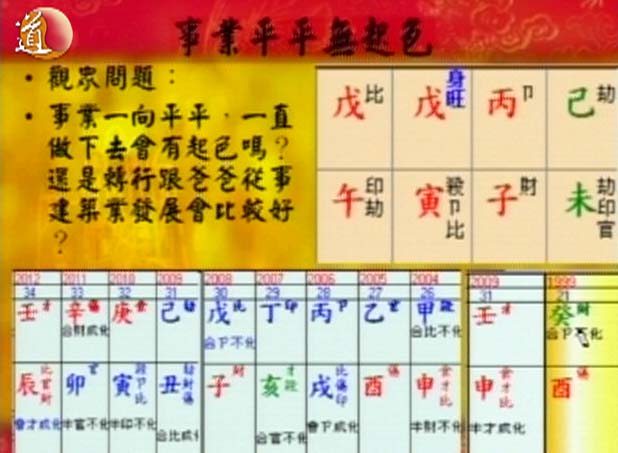 道
事業平平無起色
• 觀眾問題：
• 事業一向平平，一直
做下去會有起色嗎？
還是轉行跟爸爸從事
建築業發展會比較好
？
戊 比 戊 身旺 丙 卩 己 劫
午 印劫 寅 殺卩比 子 財 未 劫印官
2012 2011 2010 2009 2008 2007 2006 2005 2004 2009 1999
34 33 32 31 30 29 28 27 26 31 21
壬 才 辛 傷 庚 食 己 劫 戊 比 丁 印 丙 卩 乙 官 甲 殺 壬 才 癸 財
合財成化 合卩不化 合比不化 合卩不化
辰 比官財 卯 官 寅 殺卩比 丑 劫財傷 子 財 亥 才殺 戌 比傷印 酉 傷 申 食才比 申 食才比 酉 傷
會才成化 半官不化 半印不化 合比成化 合官不化 會卩成化 半財不化 半才成化